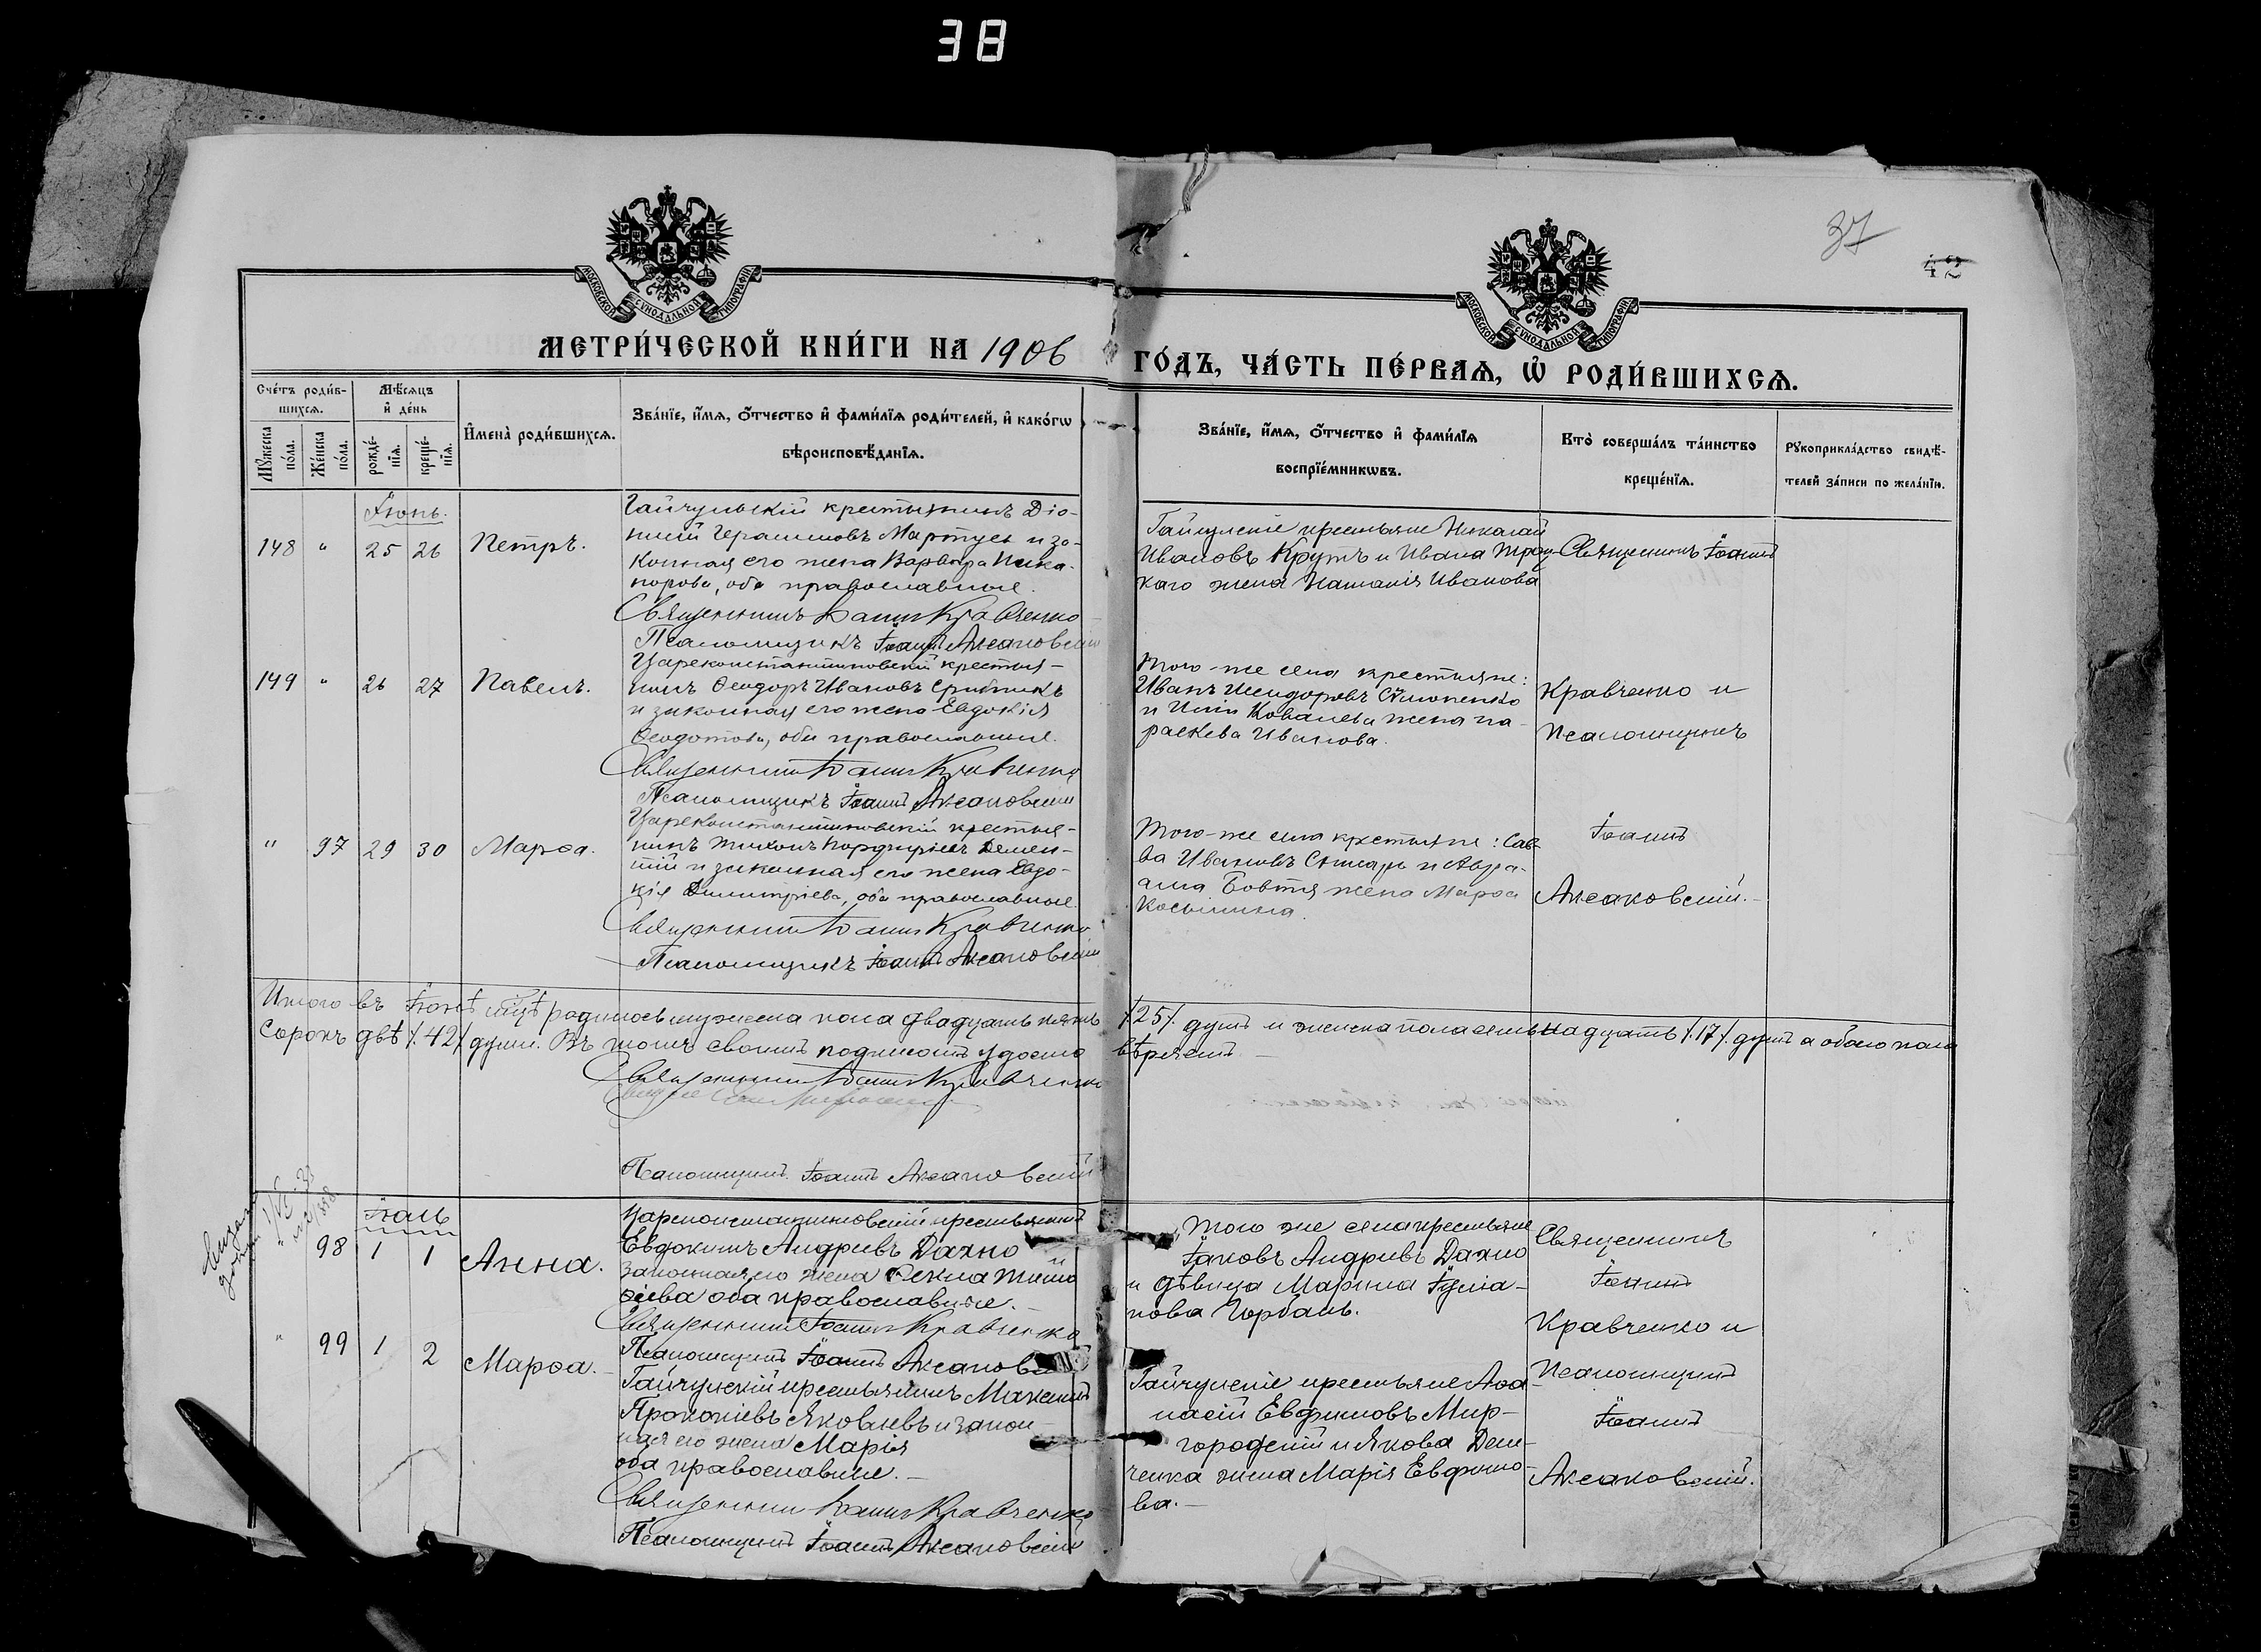 38
37
42
МОСКОВСКОЙ СѴНОДАЛЬНОЙ ТИПОГРАФІИ
МОСКОВСКОЙ СѴНОДАЛЬНОЙ ТИПОГРАФІИ
МЕТРИ́ЧЕСКОЙ КНИ́ГИ НА 1906
ГО́ДЪ, ЧА́СТЬ ПЕ́РВАѦ, Ѽ РОДИ́ВШИХСѦ.
Сче́тъ роди́в-
шихсѧ.
Мѣ́сѧцъ
и҆ де́нь
Му́жеска
по́ла.
Же́нска
по́ла.
рожде́-
нїѧ.
креще́-
нїѧ.
И҆мена̀ роди́вшихсѧ.
Зва́нїе, и҆́мѧ, о҆́тчество и҆ фами́лїѧ роди́телей, и҆ како́гѡ
вѣроисповѣ́данїѧ.
Зва́нїе, и҆́мѧ, о҆́тчество и҆ фами́лїѧ
воспрїе́мникѡвъ.
Кто̀ соверша́лъ та́инство
креще́нїѧ.
Рꙋкоприкла́дство свидѣ́-
телей за́писи по жела́нїю.
Іюнь.
148 " 25 26 Петръ.
Гайчульскій крестьянинъ Діо-
нисій Герасимовъ Мартусь и за-
конная его жена Варвара Ника-
норова, оба православные.
Священникъ Іоаннъ Кравченко
Псаломщикъ Іоаннъ Аксаковскій
Гайчулскіе крестьяне Николай
Ивановъ Крутъ и Ивана
каго жена Наталія Иванова
Священникъ Іоаннъ
149 " 26 27 Павелъ.
Цареконстантиновскій крестья-
нинъ Ѳеодоръ Ивановъ
и законная его жена Евдокія
Ѳеодотова, оба православные.
Священникъ Іоаннъ Кравченко
Псаломщикъ Іоаннъ Аксаковскій
Того-же села крестьяне:
Иванъ Исидоровъ
и Іліи Ковалева жена Па-
раскева Иванова.
Кравченко и
Псаломщикъ
" 97 29 30 Марѳа.
Цареконстантиновскій крестья-
нинъ Тихонъ Порфиріевъ Демен-
тій и законная его жена Евдо-
кія Димитріева, оба православные.
Священникъ Іоаннъ Кравченко
Псаломщикъ Іоаннъ Аксаковскій
Того-же села крестьяне: Сав-
ва Ивановъ и Авра-
ама Бовтя жена Марѳа
Косьмина.
Іоаннъ
Аксаковскій.
Итого въ Іюнѣ мцѣ родилось мужеска пола двадцать пять /.25/. душъ и женска пола семьнадцать /.17/. душъ а обоего пола
Сорокъ двѣ /.42/. души. Въ томъ своимъ подписомъ удосто-
вѣряемъ
Священникъ Іоаннъ Кравченко
Псаломщикъ Іоаннъ Аксаковскій
Іюль
" 98 1 1 Анна.
Цареконстантиновскій крестьянинъ
Евдокимъ Андреевъ Дахно и
законная его жена Ѳекла Тимо
ѳеева оба православные.
Священникъ Іоаннъ Кравченко
Псаломщикъ Іоаннъ Аксаковскій
Того же села крестьяне
Іаковъ Андреевъ Дахно
и дѣвица Марина Іулiа-
нова Горбань.
Священникъ
Іоаннъ
Кравченко и
" 99 1 2 Марѳа.
Гайчулскій крестьянинъ Максимъ
Прокопіевъ Яковлевъ и закон-
ная его жена Марія
оба православные.
Священникъ Іоаннъ Кравченко
Псаломщикъ Іоаннъ Аксаковскій
Гайчулскіе крестьяне Аѳа-
насій Евфимовъ Мир-
городскій и Якова Дем-
ченка жена Марія Евфимо-
ва.
Псаломщикъ
Іоаннъ
Аксаковскій.